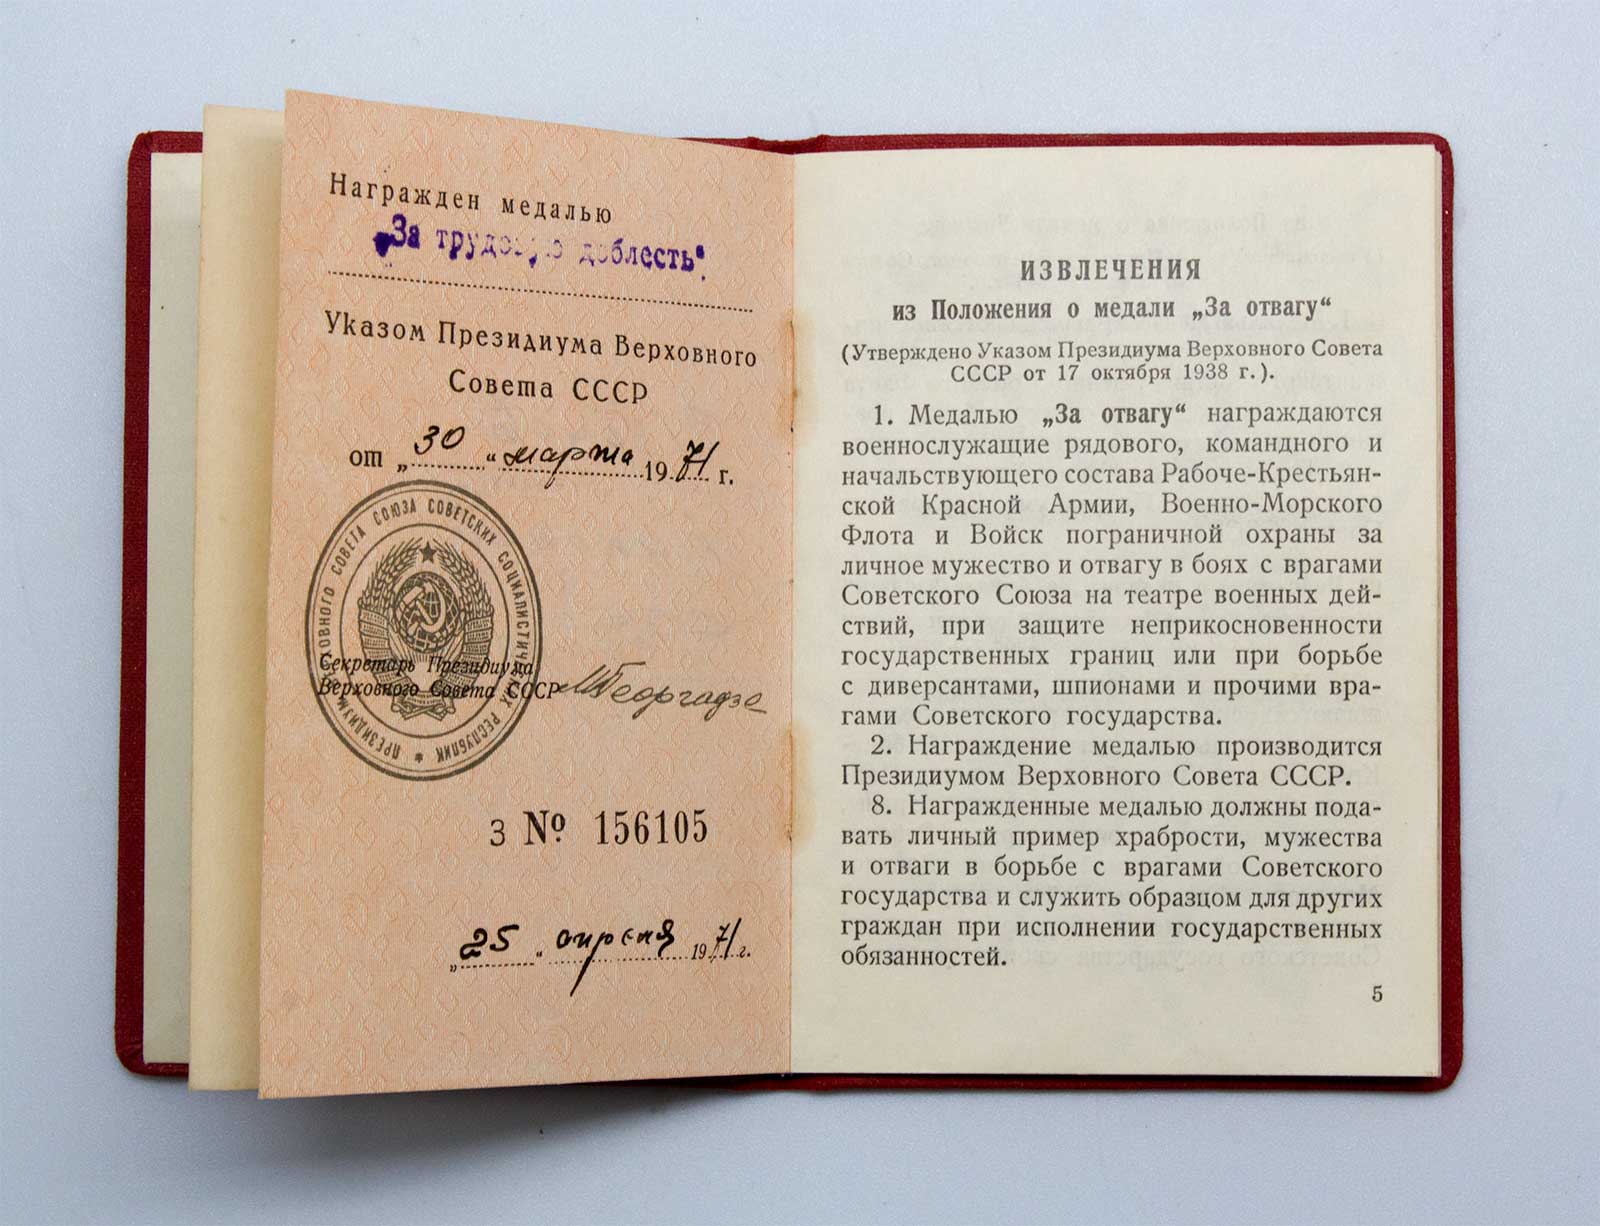 Награжден медалью
„За трудовую доблесть“.
Указом Президиума Верховного
Совета СССР
от „30“ марта 1971 г.
ПРЕЗИДИУМ ВЕРХОВНОГО СОВЕТА СОЮЗА СОВЕТСКИХ СОЦИАЛИСТИЧЕСКИХ РЕСПУБЛИК *
Секретарь Президиума
Верховного Совета СССР МГеоргадзе
З № 156105
„25“ апреля 1971 г.
ИЗВЛЕЧЕНИЯ
из Положения о медали „За отвагу“
(Утверждено Указом Президиума Верховного Совета
СССР от 17 октября 1938 г.).
1. Медалью „За отвагу“ награждаются
военнослужащие рядового, командного и
начальствующего состава Рабоче-Крестьян-
ской Красной Армии, Военно-Морского
Флота и Войск пограничной охраны за
личное мужество и отвагу в боях с врагами
Советского Союза на театре военных дей-
ствий, при защите неприкосновенности
государственных границ или при борьбе
с диверсантами, шпионами и прочими вра-
гами Советского государства.
2. Награждение медалью производится
Президиумом Верховного Совета СССР.
8. Награжденные медалью должны пода-
вать личный пример храбрости, мужества
и отваги в борьбе с врагами Советского
государства и служить образцом для других
граждан при исполнении государственных
обязанностей.
5